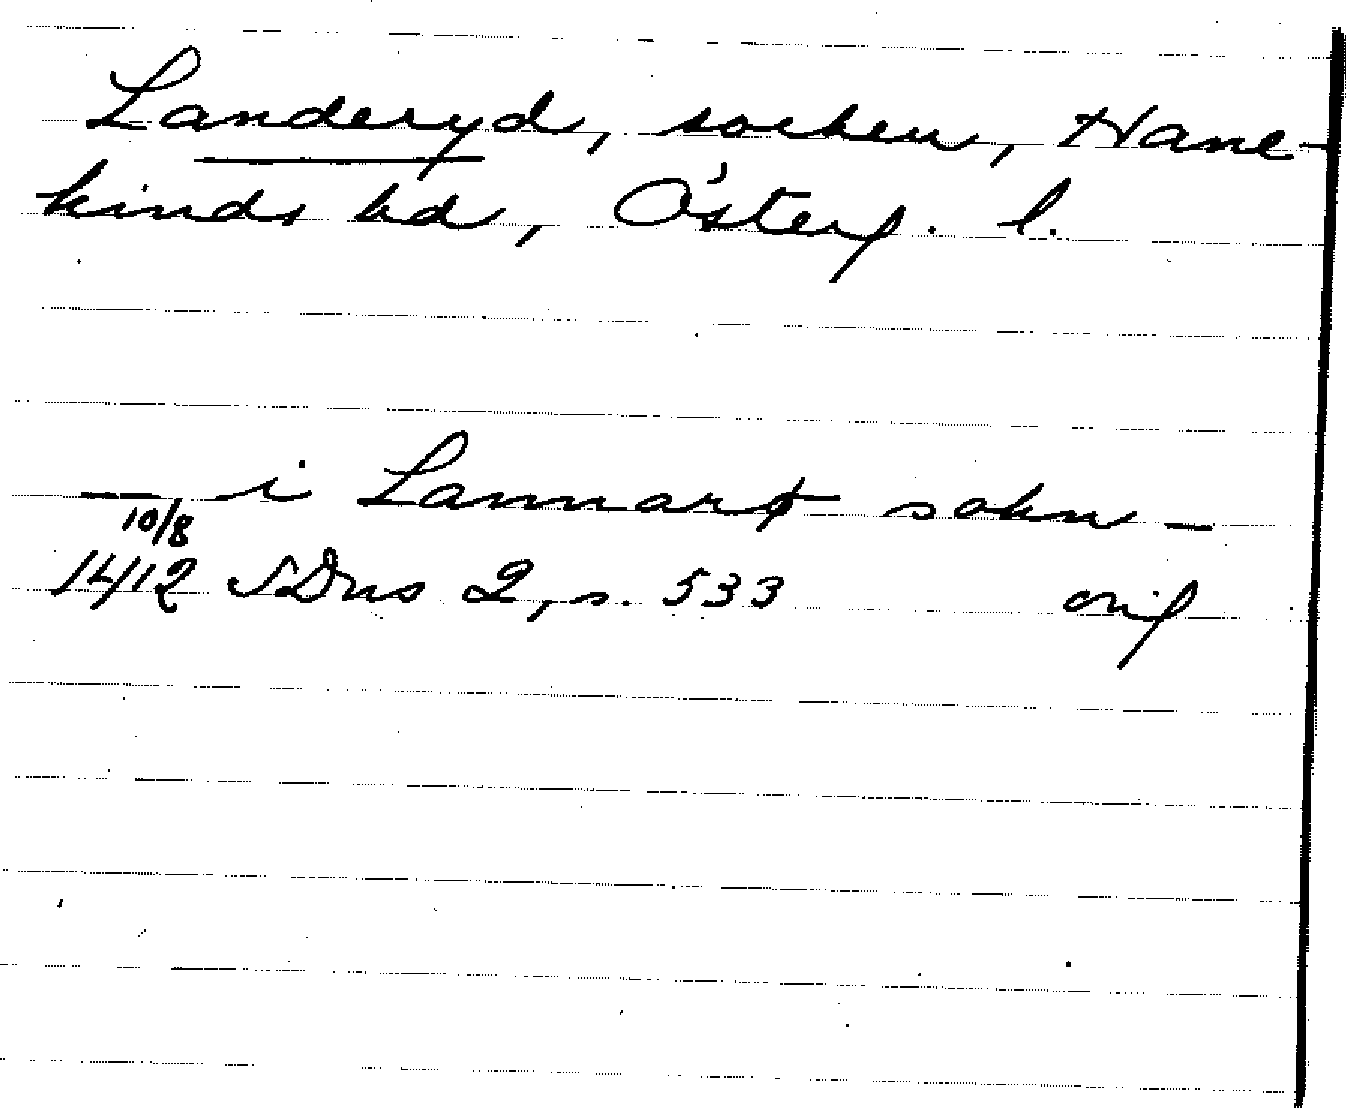 Landeryd, socken, Hane-
kinds hd, Österg. l.
— i Lannarø sokn —
10/8
1412 SDns 2, s. 533 orig